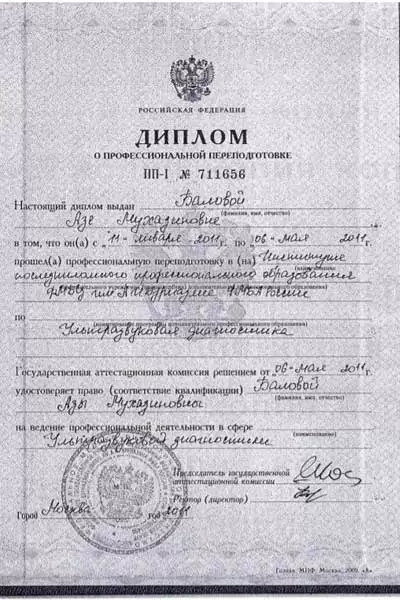 РОССИЙСКАЯ ФЕДЕРАЦИЯ
ДИПЛОМ
О ПРОФЕССИОНАЛЬНОЙ ПЕРЕПОДГОТОВКЕ
ПП-I № 711656
Настоящий диплом выдан Баловой
(фамилия, имя, отчество)
Азе Мухадиновне
в том, что он(а) с "11" января 2011г. по "06" мая 2011г.
прошел(а) профессиональную переподготовку в (на) Институте
(наименование
последипломного профессионального образования
ФМБЦ им. А.И. Бурназяна ФМБА России
по
Ультразвуковая диагностика
Государственная аттестационная комиссия решением от "06" мая 2011г.
удостоверяет право (соответствие квалификации) Баловой
(фамилия, имя, отчество)
Азы Мухадиновны
на ведение профессиональной деятельности в сфере
(наименование)
Ультразвуковой диагностики
Председатель государственной
аттестационной комиссии
Ректор (директор)
Город Москва год 2011
Гознак, МПФ, Москва, 2009, «А».